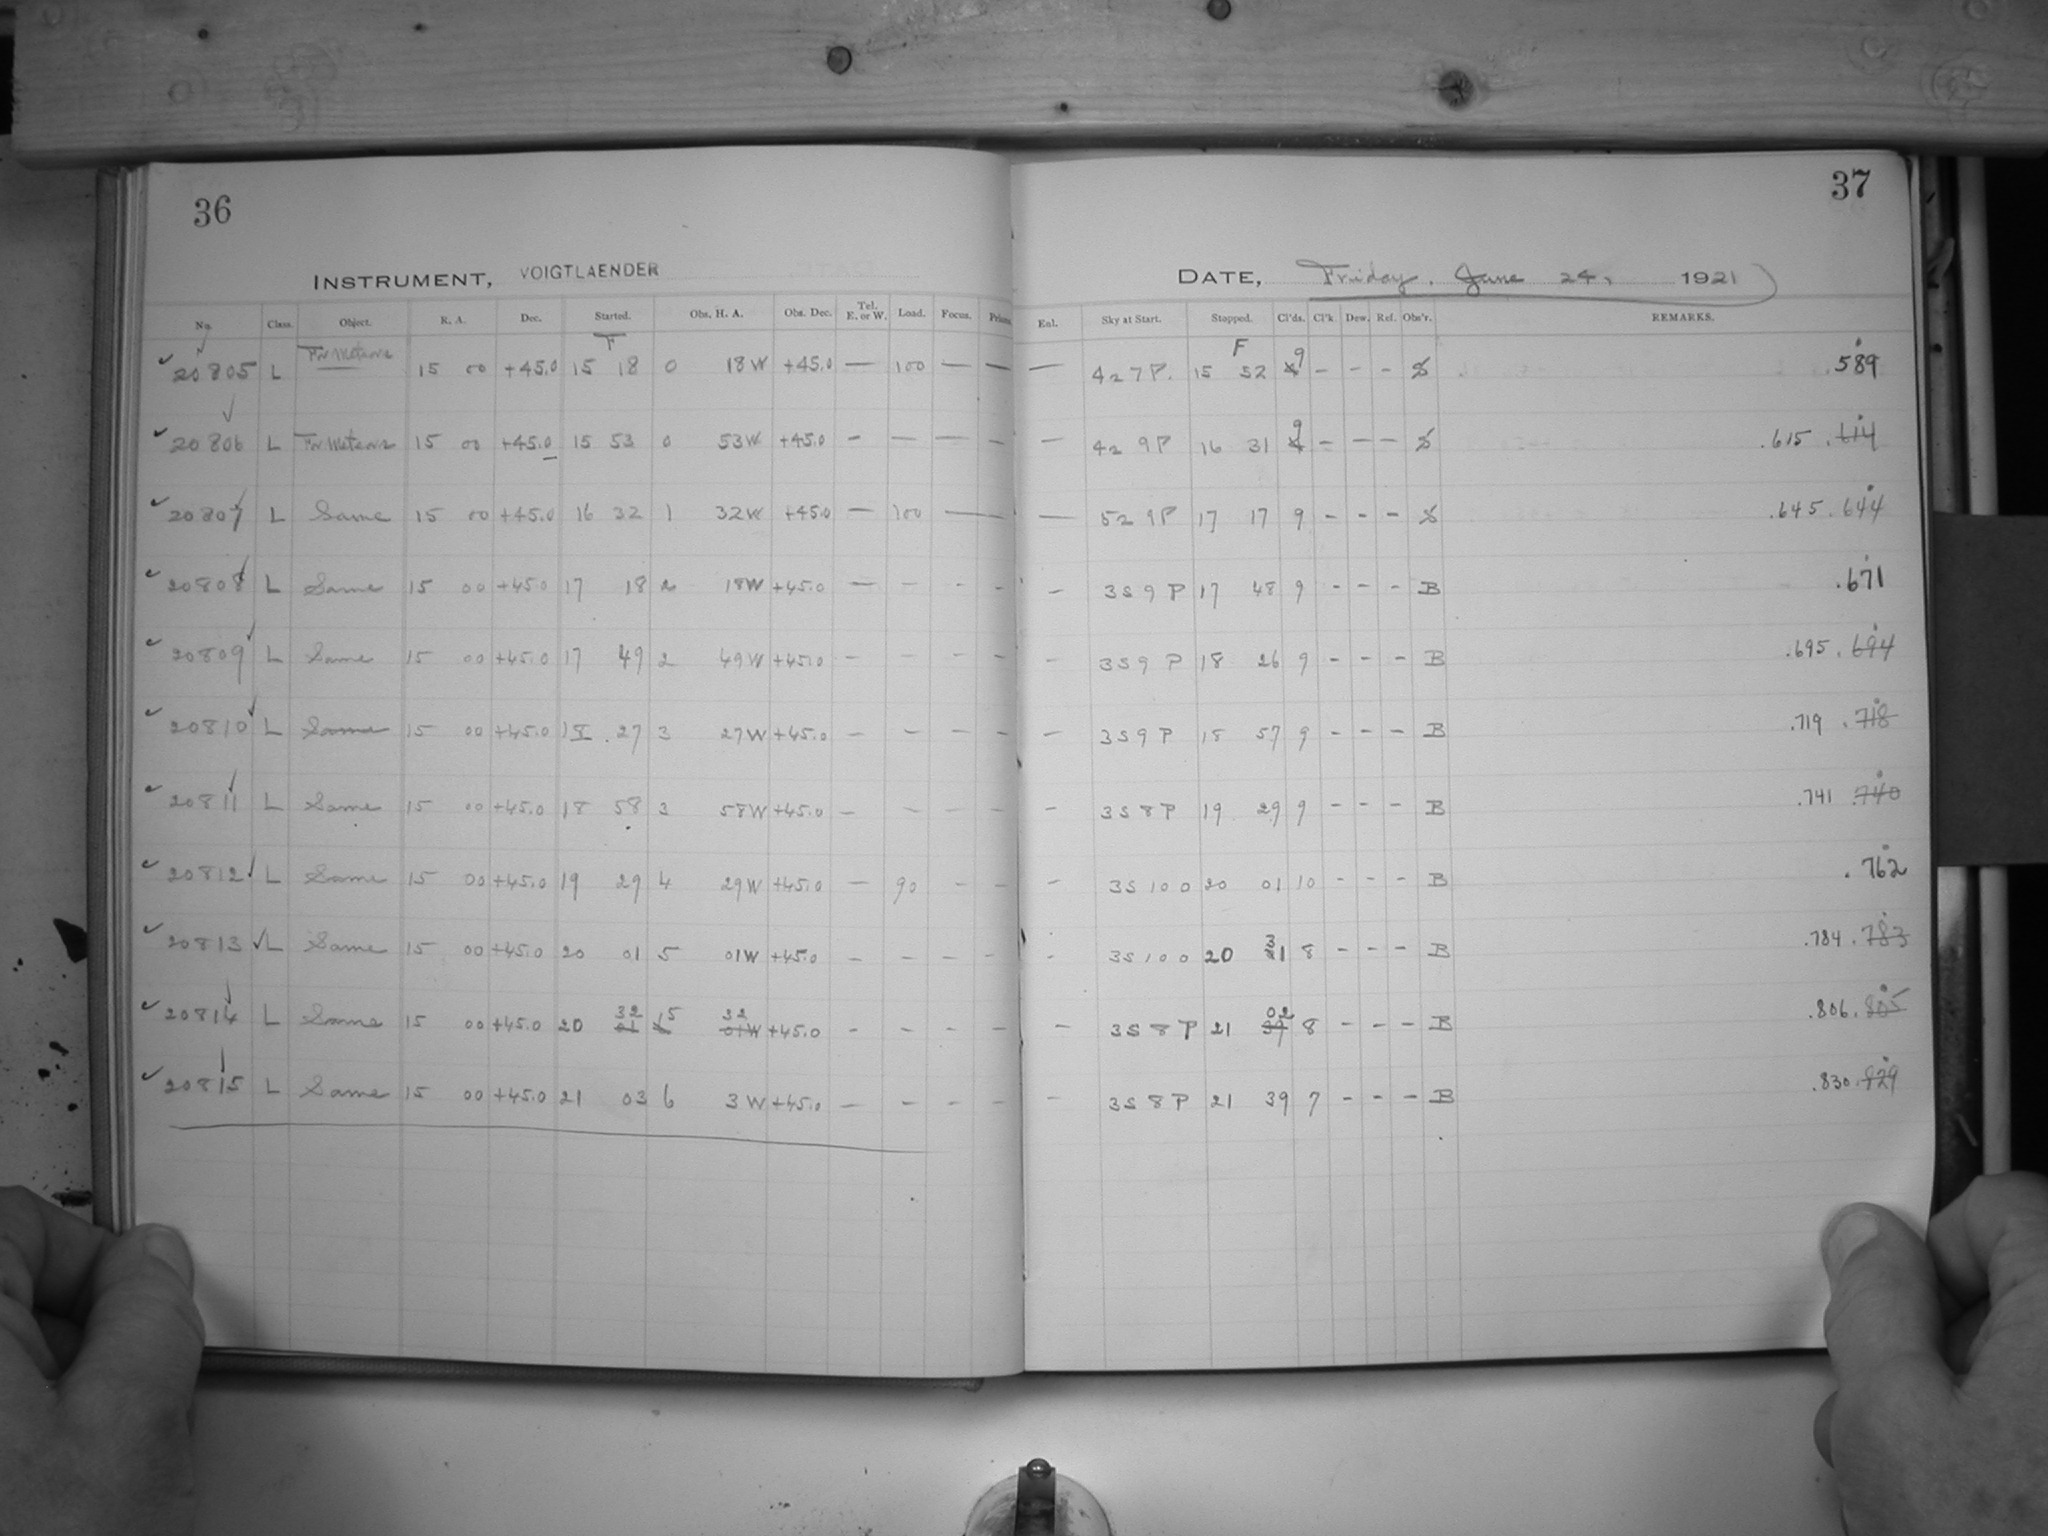 36
37
INSTRUMENT, VOIGTLAENDER
DATE, Friday, June 24, 1921
No. Class. Object. R. A. Dec. Started. Obs. H. A. Obs. Dec. Tel. E. or W. Load. Focus. Prisms Enl. Sky at Start. Stopped. Cl'ds. Cl'k. Dew. Ref. Obs'r. REMARKS.
F F
20805 L For Meteors 15 00 +45.0 15 18 0 18 W +45.0 — 100 — — — 427P. 15 52 9 - - - S .589
20806 L For Meteors 15 00 +45.0 15 53 0 53W +45.0 - — — - — 429P 16 31 9 - — — S .615 .614
20807 L Same 15 00 +45.0 16 32 1 32W +45.0 — 100 — — — 529P 17 17 9 - - - S .645 .644
20808 L Same 15 00 +45.0 17 18 2 18W +45.0 — - - - - 3S 9 P 17 48 9 - - - B .671
20809 L Same 15 00 +45.0 17 49 2 49W +45.0 - - - - - 3S9 P 18 26 9 - - - B .695 .694
20810 L Same 15 00 +45.0 18 27 3 27W +45.0 - - - - - 3S9P 18 57 9 - - - B .719 .718
20811 L Same 15 00 +45.0 18 58 3 58W +45.0 - - - - - 3S8P 19 29 9 - - - B .741 .740
20812 L Same 15 00 +45.0 19 29 4 29W +45.0 — 90 - - - 3S 10 0 20 01 10 - - - B .762
20813 L Same 15 00 +45.0 20 01 5 01W +45.0 - - - - - 3S 10 0 20 31 8 - - - B .784 .783
20814 L Same 15 00 +45.0 20 32 5 32 01W +45.0 - - - - - 3S 8 P 21 02 8 - - - B .806 .805
20815 L Same 15 00 +45.0 21 03 6 3 W +45.0 — - - - - 3S 8 P 21 39 7 - - - B .830 .829